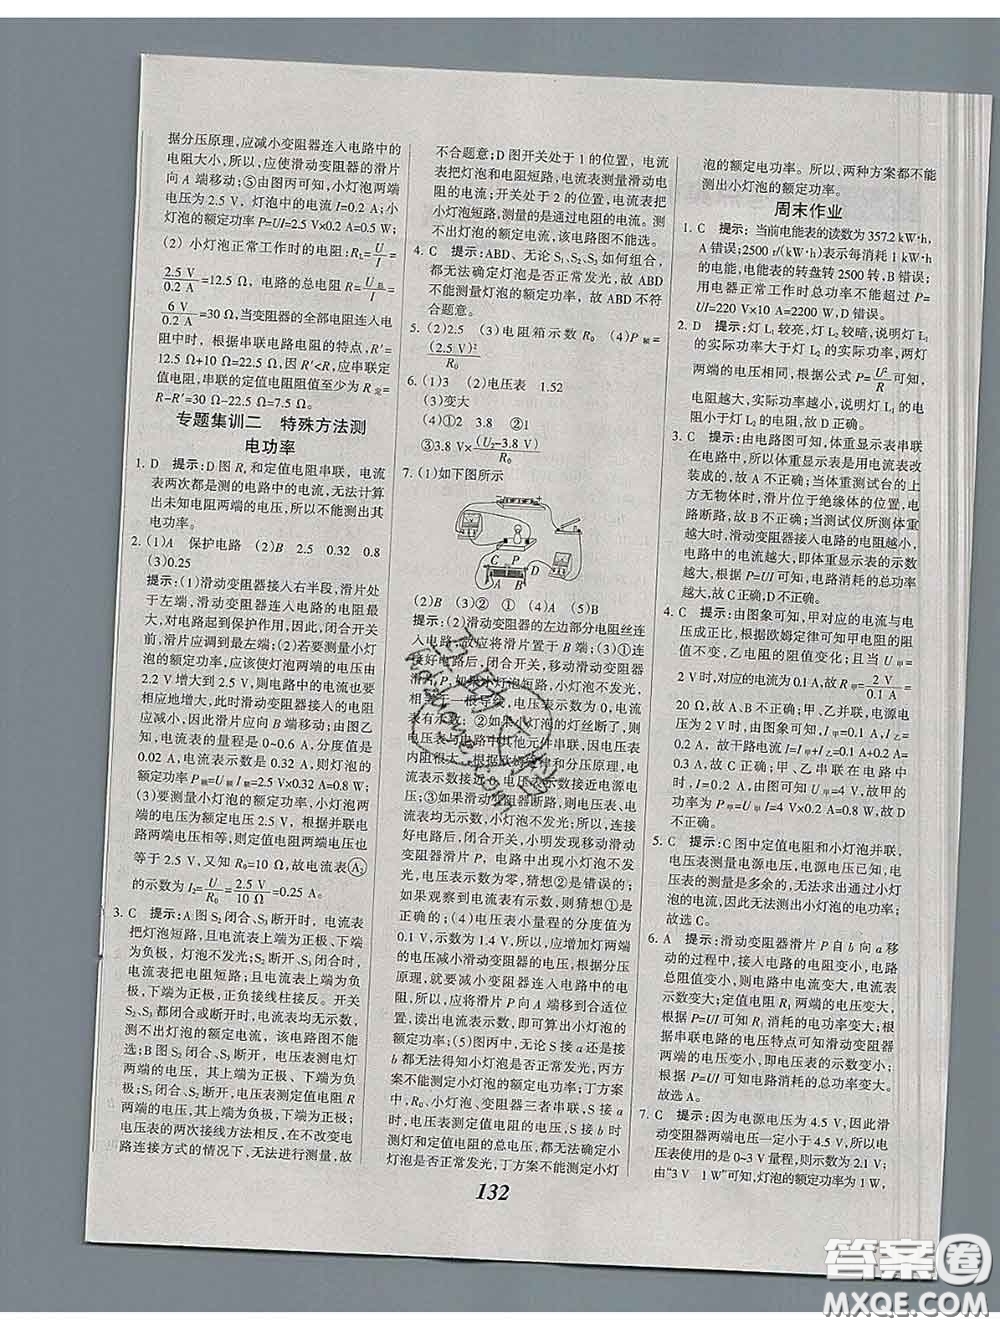 据分压原理,应减小变阻器连入电路中的
电阻大小,所以,应使滑动变阻器的滑片
向 A 端移动;⑤由图丙可知,小灯泡两端
电压为 2.5 V,灯泡中的电流为 0.2 A;小
灯泡的额定功率 P=UI=2.5 V×0.2 A=0.5 W
(2) 小灯泡正常工作时的电阻:RL=U/I
=2.5 V/0.2 A=12.5 Ω;电路的总电阻 R=U总/I=
6 V/0.2 A=30 Ω,当变阻器的全部电阻连入电
路中时,根据串联电路电阻的特点,R′=
12.5 Ω+10 Ω=22.5 Ω,因 R′<R,应串联定
值电阻,串联的定值电阻阻值至少为 R定=
R-R′=30 Ω-22.5 Ω=7.5 Ω。
专题集训二 特殊方法测
电功率
1. D 提示:D 图 Rx和定值电阻串联,电流
表两次都是测的电路中的电流,无法计算
出未知电阻两端的电压,所以不能测出其
电功率。
2. (1)A 保护电路 (2)B 2.5 0.32 0.8
(3)0.25
提示:(1)滑动变阻器接入右半段,滑片处
于左端,滑动变阻器连入电路的电阻最
大,对电路起到保护作用。因此,闭合开关
前,滑片应调到最左端;(2)若要测量小灯
泡的额定功率,应该使灯泡两端的电压由
2.2 V 增大到 2.5 V,则电路中的电流也要
相应地增大,因此滑动变阻器的电阻
应减小,因此滑片应向 B 端移动;由图乙
知,电流表的量程是 0~0.6 A,分度值是
0.02 A,电流表的示数是 0.32 A,则灯泡的
额定功率 P额=U额I额=2.5 V×0.32 A=0.8 W;
(3)要测量小灯泡的额定功率,应使小灯泡
两端电压为额定电压 2.5 V,根据并联电
路两端电压相等,则定值电阻两端电压也
等于 2.5 V,又知 R0=10 Ω,故电流表A2
的示数为 I2=U/R0=2.5 V/10 Ω=0.25 A。
3. C 提示:A 图 S2 闭合、S3 断开时,电流表
把灯泡短路,且电流表上端为正极、下端
为负极,灯泡不发光;S3 闭合、S2 断开时,
电流表把电阻短路,且电流表上端为负
极、下端为正极,正负接线柱接反。开关
S2、S3 都闭合或断开时,电流表均无示数,
测不出灯泡的额定电流,该电路图不可
选;B 图 S2 闭合、S3 断开,电压表测电灯
两端的电压,且电压表上端为正极、下端
为负极;S3 闭合、S2 断开,电压表测定值电阻
R 两端的电压,且上端为负极、下端为正极,
电压表的两次接线方法相反,在不改变电
路连接方式的情况下,无法进行测量,故
不合题意;D 图开关处于 1 的位置,电流
表把灯泡和电阻短路,电流表测量滑动变
阻器的电流;开关处于 2 的位置,电流表
把小灯泡短路,测量的是通过电阻的电流,
测不出灯泡的额定电流,该电路图不能选。
4. C 提示:ABD、无论 S1、S2、S3 如何组合,
都无法确定灯泡是否正常发光,故 ABD
不能测量灯泡的额定功率,故 ABD 不符
合题意。
5. (2)2.5 (3)电阻箱示数 R0 (4)P额=
(2.5 V)²/R0
6. (1)3 (2)电压表 1.52
(3)变大
(4)②3.8
③3.8 V×(U2-3.8 V)/R0
7. (1)如下图所示
C P D
A B
(2)B (3)② ① (4)A (5)B
提示:(2)滑动变阻器的左边部分电阻丝连
入电路,故应将滑片置于 B 端;(3)①连
接好电路后,闭合开关,移动滑动变阻器
滑片 P,如果小灯泡短路,小灯泡不发光,
相当于一根导线,电压表示数为 0,电流
表有示数;②如果小灯泡的灯丝断了,电
压表与电路中其他元件串联,因电压表
内阻很大,根据欧姆定律和分压原理,电
流表示数接近 0,电压表示数接近电源电
压;③如果滑动变阻器断路,则电压表、电
流表均没有示数,小灯泡不发光;所以,连接
好电路后,闭合开关,小明发现移动滑动
变阻器滑片 P,电路中出现小灯泡不发
光,电压表示数为零,猜想②是错误的;
如果观察到电流表有示数,则猜想①是
正确的;(4)电压表小量程的分度值为
0.1 V,示数为 1.4 V,所以,应增加灯两端
的电压减小滑动变阻器的电压,根据分压
原理,就要减小变阻器连入电路中的电
阻,所以,应将滑片 P 向 A 端移动到合适位
置,读出电流表示数,即可算出小灯泡的额
定功率;(5)丙图中,无论 S 接 a 还是接
b 都无法得知小灯泡是否正常发光,丙方
案不能测定小灯泡的额定电功率;丁方案
中,R0、小灯泡、变阻器三者串联,S 接 a
时,电压表测定值电阻的电压,S 接 b 时
测灯和定值电阻的总电压,S 接 b 时小灯
泡是否正常发光,丁方案不能测定小灯
泡的额定电功率。所以,两种方案都不能
测出小灯泡的额定功率。
周末作业
1. C 提示:当前电能表的读数为 357.2 kW·h,
A 错误;2500 r/(kW·h)表示每消耗 1 kW·h
的电能,电能表的转盘转 2500 转,B 错误;
用电器正常工作时总功率不能超过 P=
UI=220 V×10 A=2200 W,D 错误。
2. D 提示:灯 L1 较亮,灯 L2 较暗,说明灯 L1
的实际功率大于灯 L2 的实际功率,两灯
两端的电压相等,根据公式 P=U²/R可知,
电阻越大,实际功率越小,说明灯 L1 的电
阻小于灯 L2 的电阻,故 D 正确。
3. C 提示:由电路图可知,体重显示表串联
在电路中,说明体重显示表是用电流表改
装成的,故 A 不正确;体重测试台的台上
方无物体时,滑片位于绝缘体的位置,电
路断路,故 B 不正确;当测试仪所测体重
越大时,滑动变阻器接入电路的电阻越小,
电路中的电流越大,即体重显示表的示数
越大,根据 P=UI 可知,电路消耗的总功率
越大,故 C 正确,D 不正确。
4. C 提示:由图象可知,甲对应的电流与电
压成正比,根据欧姆定律可知甲电阻的阻
值不变,乙电阻的阻值变化;且当 U甲=
2 V 时,对应的电流为 0.1 A,故 R甲=2 V/0.1 A=
20 Ω,故 A、B 不正确;甲、乙并联,电源电
压为 2 V 时,由图象可知,I甲=0.1 A,I乙=
0.2 A,故干路电流 I=I甲+I乙=0.1 A+0.2 A=
0.3 A,故 C 正确;甲、乙串联在电路
中,I=0.2 A,由图象可知 U甲=4 V,故甲的
功率为 P甲=U甲I=4 V×0.2 A=0.8 W,故 D
不正确。
5. C 提示:C 图中定值电阻和小灯泡并联,
电压表测量电源电压,电源电压已知,电
压表的测量是多余的,无法求出通过小灯
泡的电流,所以无法测出小灯泡的功率。
故选 C。
6. A 提示:滑动变阻器滑片 P 自 b 向 a 移
动的过程中,接入电路的电阻变小,电路
总阻值变小;定值电阻 R1 两端的电压变大,
P=UI 可知 R1 消耗的电功率变大;
根据串联电路的电压特点可知滑动变阻器
两端的电压变小,即电压表的示数变小;
根据 P=UI 可知,电路消耗的总功率变大。
故选 A。
7. C 提示:因为电源电压为 4.5 V,闭合开关,滑
动变阻器两端电压一定小于 4.5 V,所以电
压表使用的是 0~3 V 量程,示数为 2.1 V;
由“3 V 1 W”可知,灯泡的额定功率为 1 W,
132
答案圈
MXQE.COM